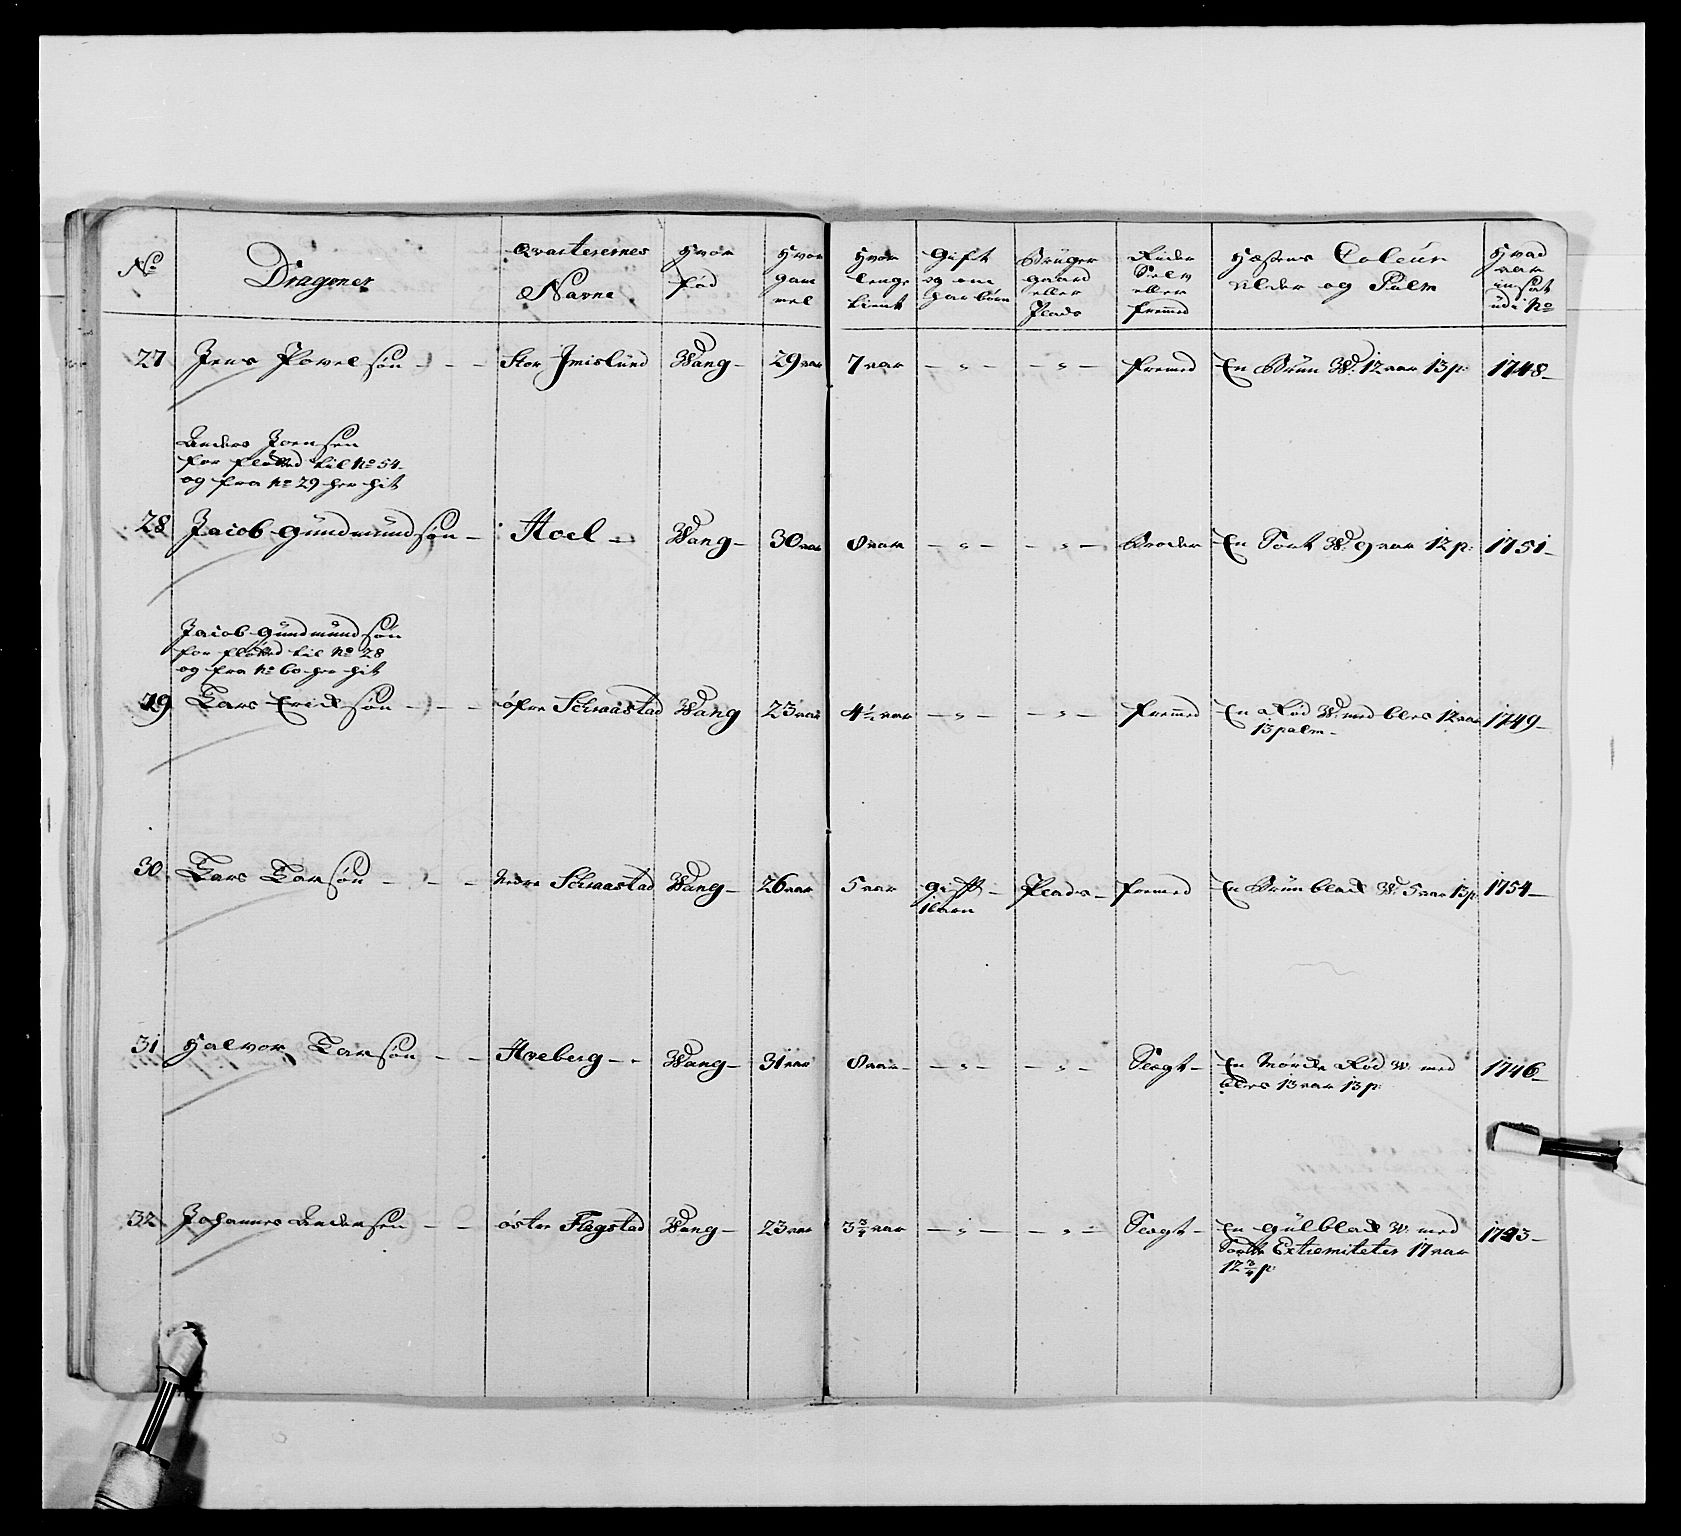 No
Dragoner
Qvarterernes
Navne
Hvor
fød
Hvor
gam
mel
Hvor
lenge
tient
Gift
og om
har børn
Brüger
gaard
eller
Plads
Rüder
Selv
eller
fremed
Hæstens Coleur
Alder og Palm
Hvad
aar
insat
udi No
27 Jens Povelsøn - - - Stor Imislünd Wang - 29 aar 7 aar - " - - " - fremed En Brün W: 12 aar 13 p: 1748 -
Anders Joensen
for fløtted til No 54
og fra No 29 her hit
28 Jacob Gündmündsøn - Hoel - Wang - 30 aar 8 aar - " - - " - Broder En Sort W: 9 aar 12 p: 1751 -
Jacob Gündmündsøn
for fløtted til No 28
og fra No 60 her hit
29 Lars Ericksøn - - - øfre Schraastad Wang 23 aar 4½ aar - " - - " - fremed En Rød W: med bles 12 aar 1749 -
13 palm -
30 Lars Larsøn - - - Nedre Schraastad Wang - 26 aar 5 aar gift - Plads - fremed En Brünblack W: 5 aar 13 p: 1754 -
1 barn
31 Halvor Larsøn - - Hveberg - - Wang - 31 aar 8 aar - " - - " - Slegt - En Mørck Rød W: med 1746 -
bles 13 aar 13 p:
32 Johannes Andersen - - øster Flagstad Wang - 23 aar 3¾ aar - " - - " - Slegt - En gülblack W: med 1743 -
Sorte Extremiteter 17 aar
12¾ p: